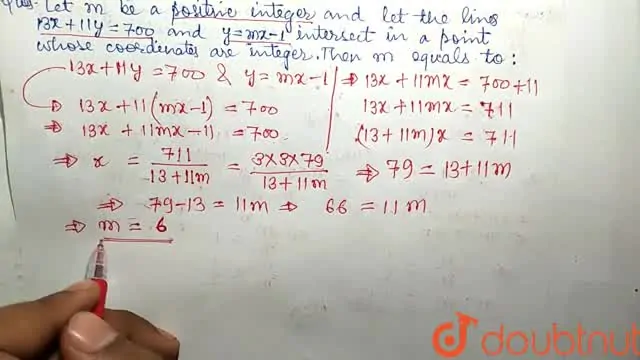 Ques- Let m be a positive integer and let the lines
13x+11y=700 and y=mx-1 intersect in a point
whose coordinates are integer. Then m equals to:
13x+11y=700 & y=mx-1
⇒ 13x+11(mx-1) = 700
⇒ 13x+11mx-11 = 700
⇒ x = 711/(13+11m) = 3×3×79/(13+11m)
⇒ 13x+11mx = 700+11
13x+11mx = 711
(13+11m)x = 711
⇒ 79 = 13+11m
⇒ 79-13 = 11m ⇒ 66 = 11m
⇒ m = 6
doubtnut